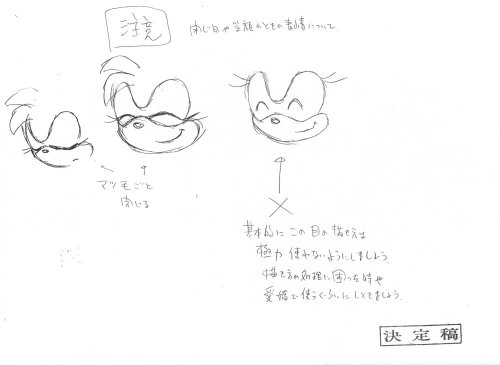 注意
閉じ目や笑顔のときの表情について
マツ毛ごと
閉じる
基本的にこの目の描き方は
極力使わないようにしましょう。
描き方の処理に困った時や
愛嬌で使うぐらいにしときましょう。
決定稿